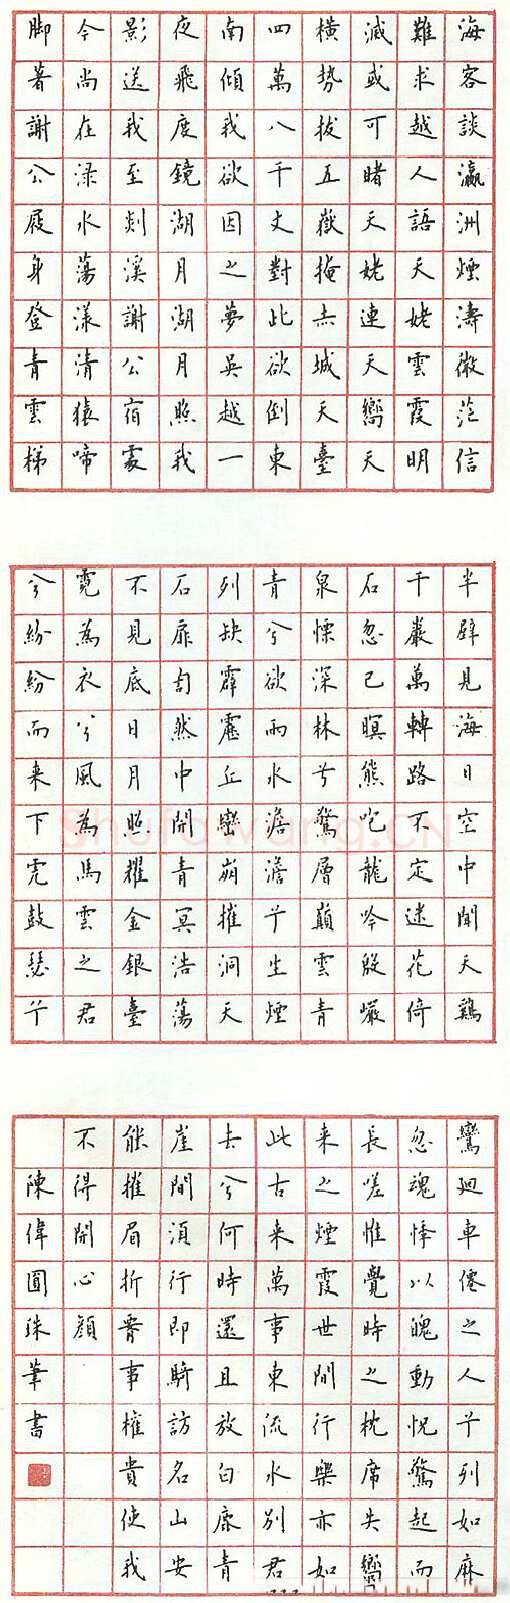 海客談瀛洲煙濤微茫信
難求越人語天姥雲霞明
滅或可睹天姥連天嚮天
橫勢拔五嶽掩赤城天臺
四萬八千丈對此欲倒東
南傾我欲因之夢吳越一
夜飛度鏡湖月湖月照我
影送我至剡溪謝公宿處
今尚在淥水蕩漾清猿啼
脚著謝公屐身登青雲梯
半壁見海日空中聞天鷄
千巖萬轉路不定迷花倚
石忽已暝熊咆龍吟殷巖
泉慄深林兮驚層巔雲青
青兮欲雨水澹澹兮生煙
列缺霹靂丘巒崩摧洞天
石扉訇然中開青冥浩蕩
不見底日月照耀金銀臺
霓為衣兮風為馬雲之君
兮紛紛而来下虎鼓瑟兮
鸞迴車僊之人兮列如麻
忽魂悸以魄動怳驚起而
長嗟惟覺時之枕席失嚮
来之煙霞世間行樂亦如
此古来萬事東流水別君
去兮何時還且放白鹿青
崖間須行即騎訪名山安
能摧眉折腰事權貴使我
不得開心顏
陳偉圓珠筆書
Shufawang.CN